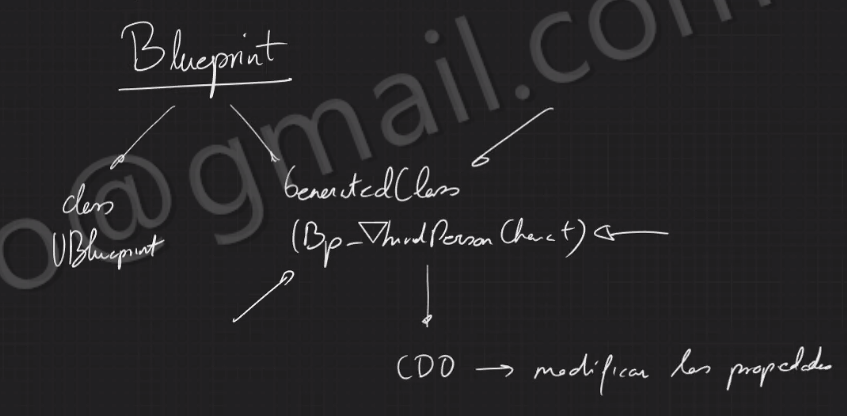 Blueprint
class
UBlueprint
GeneratedClass
(Bp_ThirdPerson Charact)
CDO → modificar las propiedades
o@gmail.com